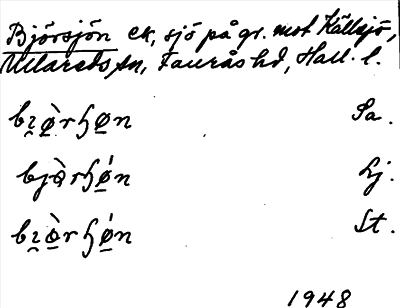 Björsjön ek, sjö på gr. mot Källsjö,
Ullareds sn, Faurås hd, Hall. l.
bɪ̯ø̀rɧøn Sa.
bjø̀rɧǿn Lj.
bɪ̯ø̀rɧǿn St.
1948